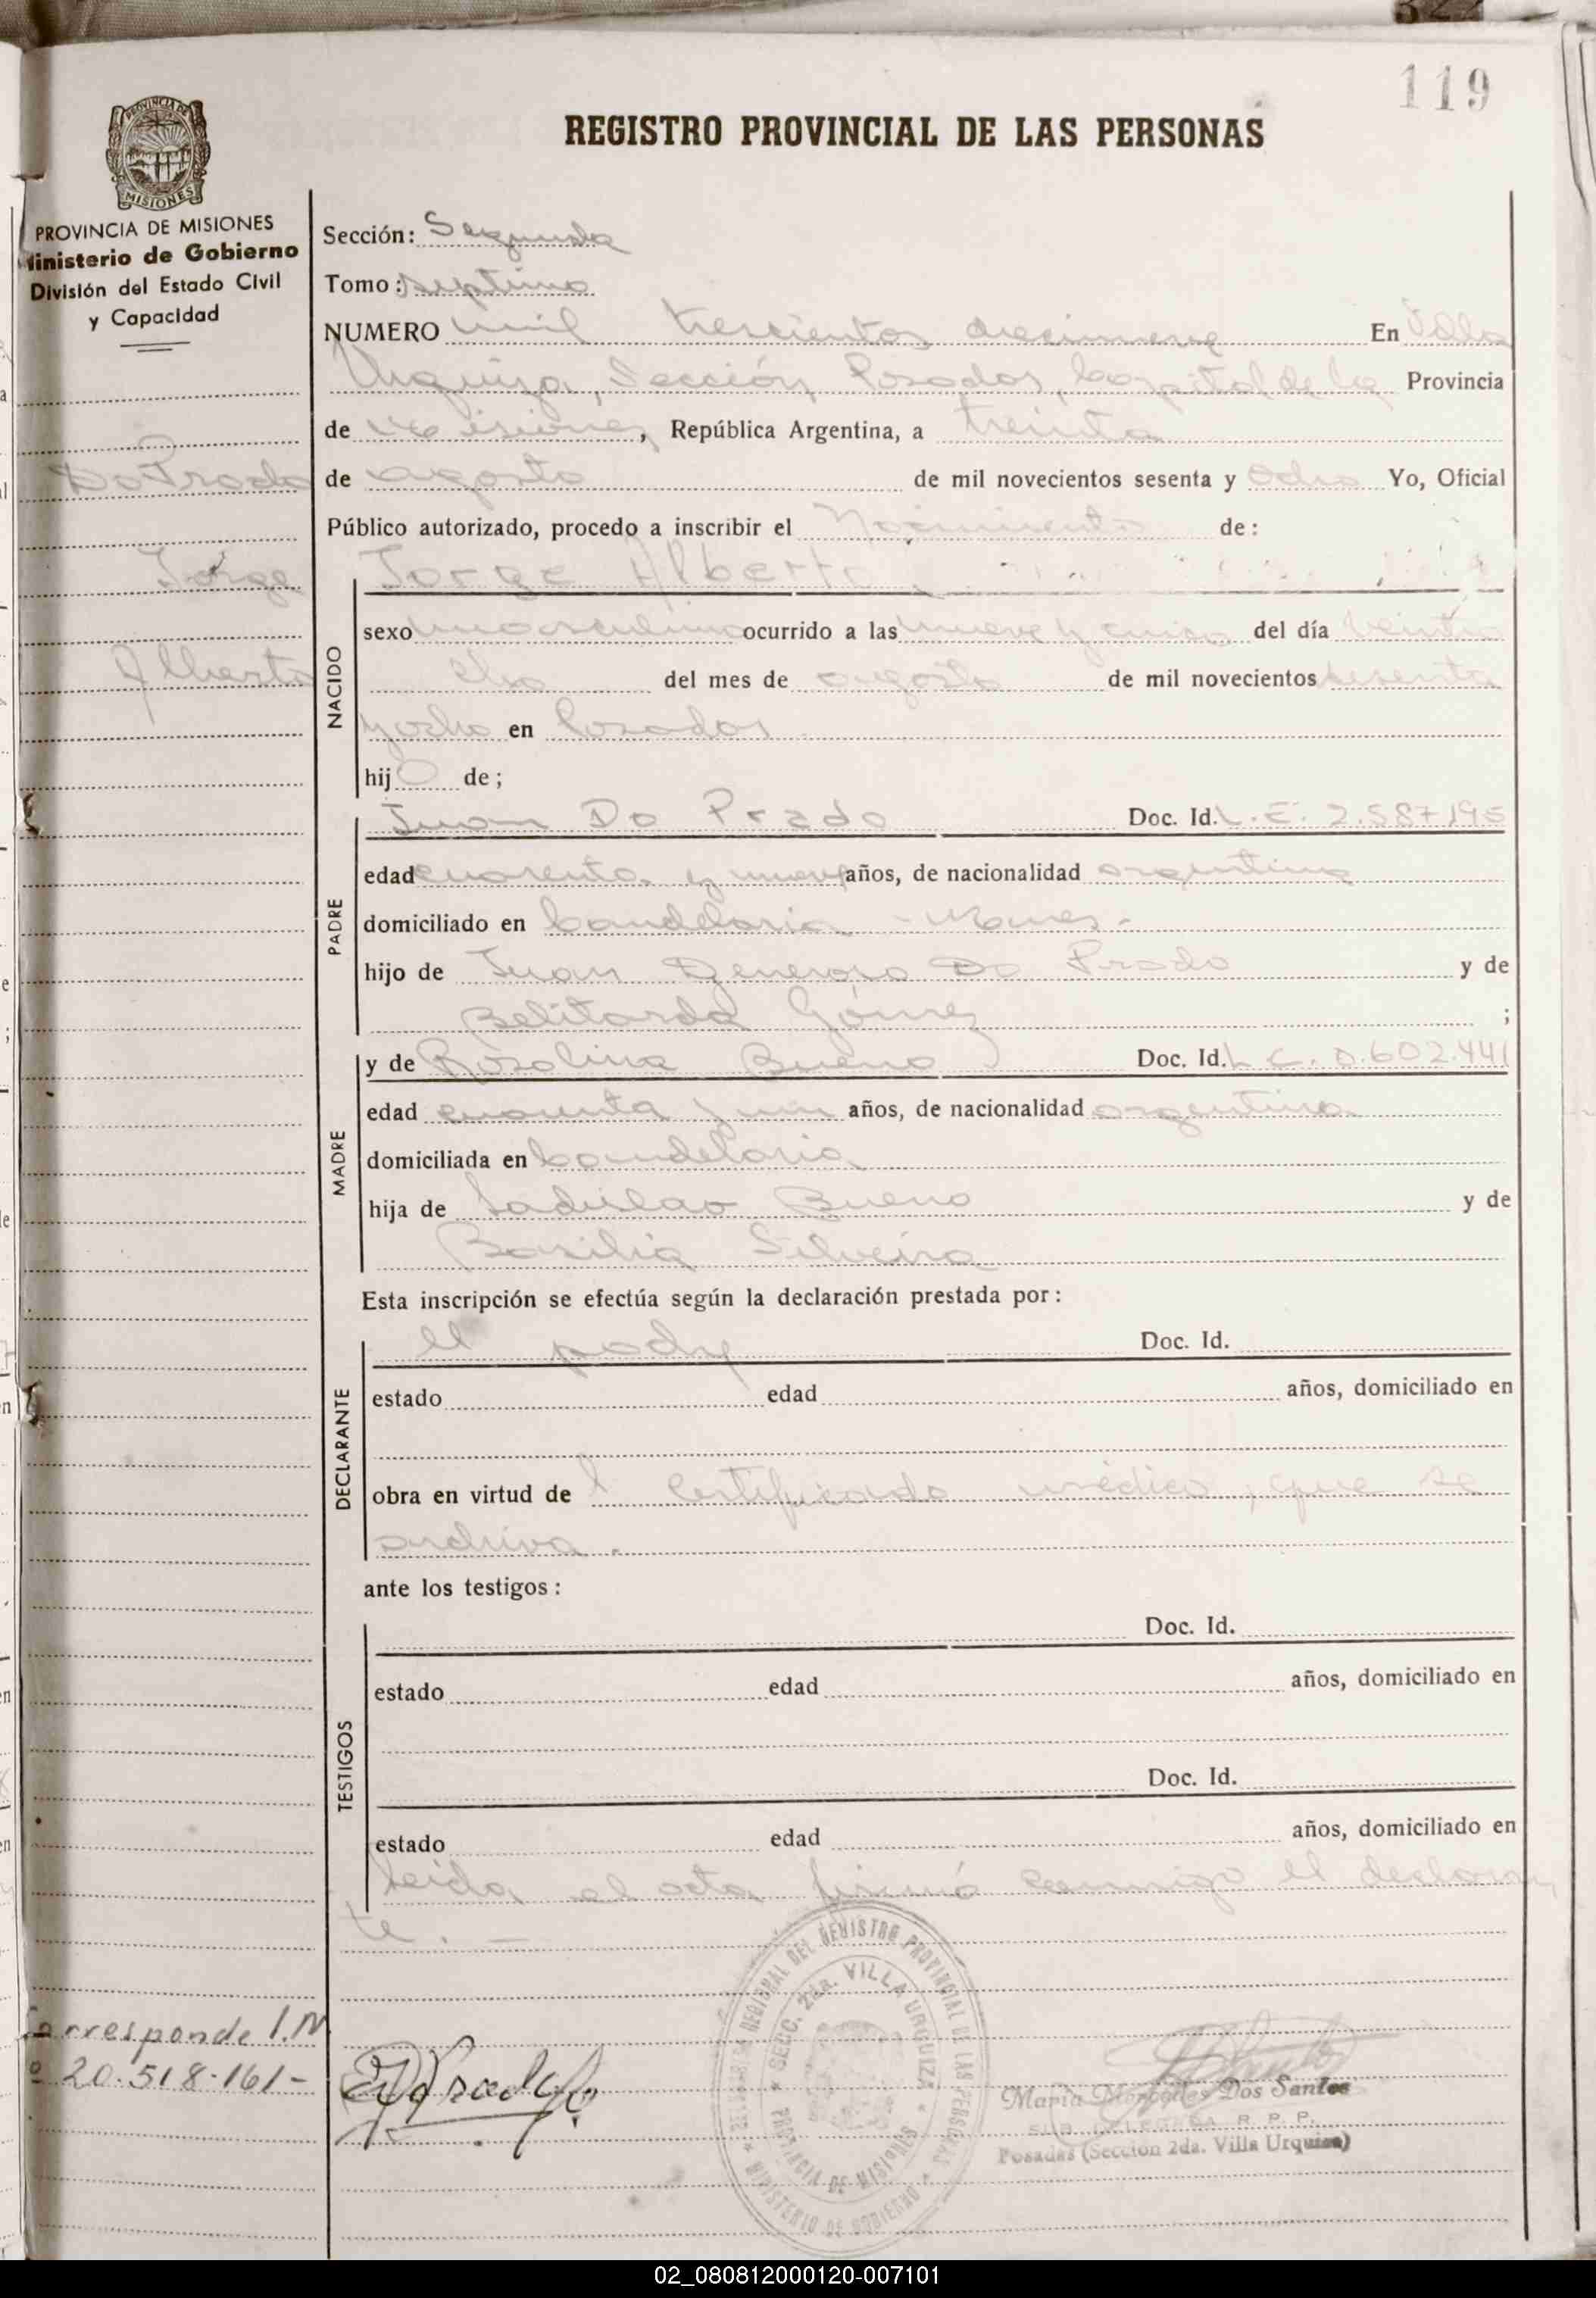 119
REGISTRO PROVINCIAL DE LAS PERSONAS
PROVINCIA DE MISIONES
Ministerio de Gobierno
División del Estado Civil
y Capacidad
Sección: Segunda
Tomo: septimo
NUMERO mil trescientos diecinueve En Villa
Urquiza, Sección Posadas, Capital de la Provincia
de Misiones, República Argentina, a treinta
de agosto de mil novecientos sesenta y Ocho Yo, Oficial
Público autorizado, procedo a inscribir el Nacimiento de:
Do Prado
Jorge
Alberto
NACIDO
Jorge Alberto
sexo masculino ocurrido a las nueve y cinco del día veinti
ocho del mes de agosto de mil novecientos sesenta
y ocho en Posadas
hijo de;
PADRE
Juan Do Prado Doc. Id. L.E. 2.587.195
edad cuarenta y nueve años, de nacionalidad argentina
domiciliado en Candelaria - Mnes-
hijo de Juan Generoso Do Prado y de
Belitarda Gómez ;
MADRE
y de Rosalina Bueno Doc. Id. L C. 0.602.441
edad cuarenta y un años, de nacionalidad argentina
domiciliada en Candelaria
hija de Ladislao Bueno y de
Basilia Silveira
Esta inscripción se efectúa según la declaración prestada por:
DECLARANTE
el padre Doc. Id.
estado edad años, domiciliado en
obra en virtud de l Certificado médico, que se
archiva.
ante los testigos:
TESTIGOS
Doc. Id.
estado edad años, domiciliado en
Doc. Id.
estado edad años, domiciliado en
Leida el acta firmó conmigo el declaran
te. —
Corresponde I.M
º 20.518.161-
REGIONAL DEL REGISTRO PROVINCIAL DE LAS PERSONAS
SECC. 2da. VILLA URQUIZA
PROVINCIA DE MISIONES
MINISTERIO DE GOBIERNO
Maria Mercedes Dos Santos
SUB DELEGADA R. P. P.
Posadas (Sección 2da. Villa Urquiza)
02_080812000120-007101